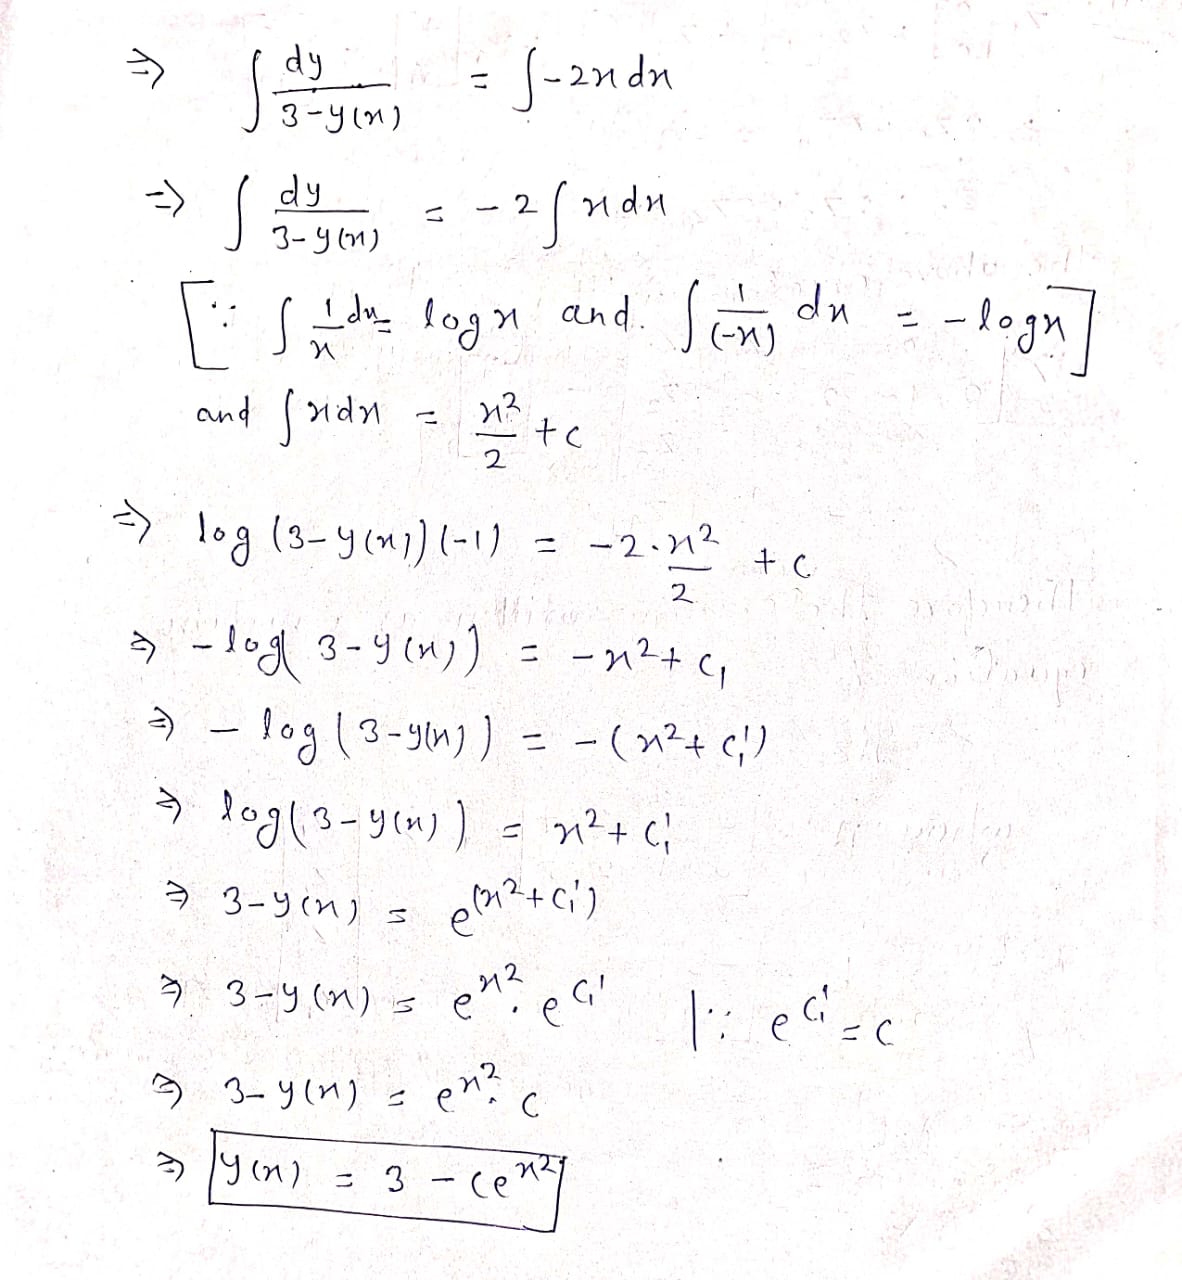 ⇒ ∫ dy/(3-y(x)) = ∫-2x dx
⇒ ∫ dy/(3-y(x)) = -2∫x dx
[∵ ∫ 1/x dx = log x and. ∫ 1/(-x) dx = -log x]
and ∫x dx = x²/2 + c
⇒ log (3-y(x)) (-1) = -2·x²/2 + c
⇒ -log( 3-y(x)) = -x²+ c₁
⇒ - log (3-y(x)) = -(x²+ c₁')
⇒ log(3-y(x)) = x²+ c₁'
⇒ 3-y(x) = e^(x²+c₁')
⇒ 3-y(x) = e^x². e^c₁' |∵ e^c₁' = c
⇒ 3-y(x) = e^x². c
⇒ y(x) = 3 - ce^x²